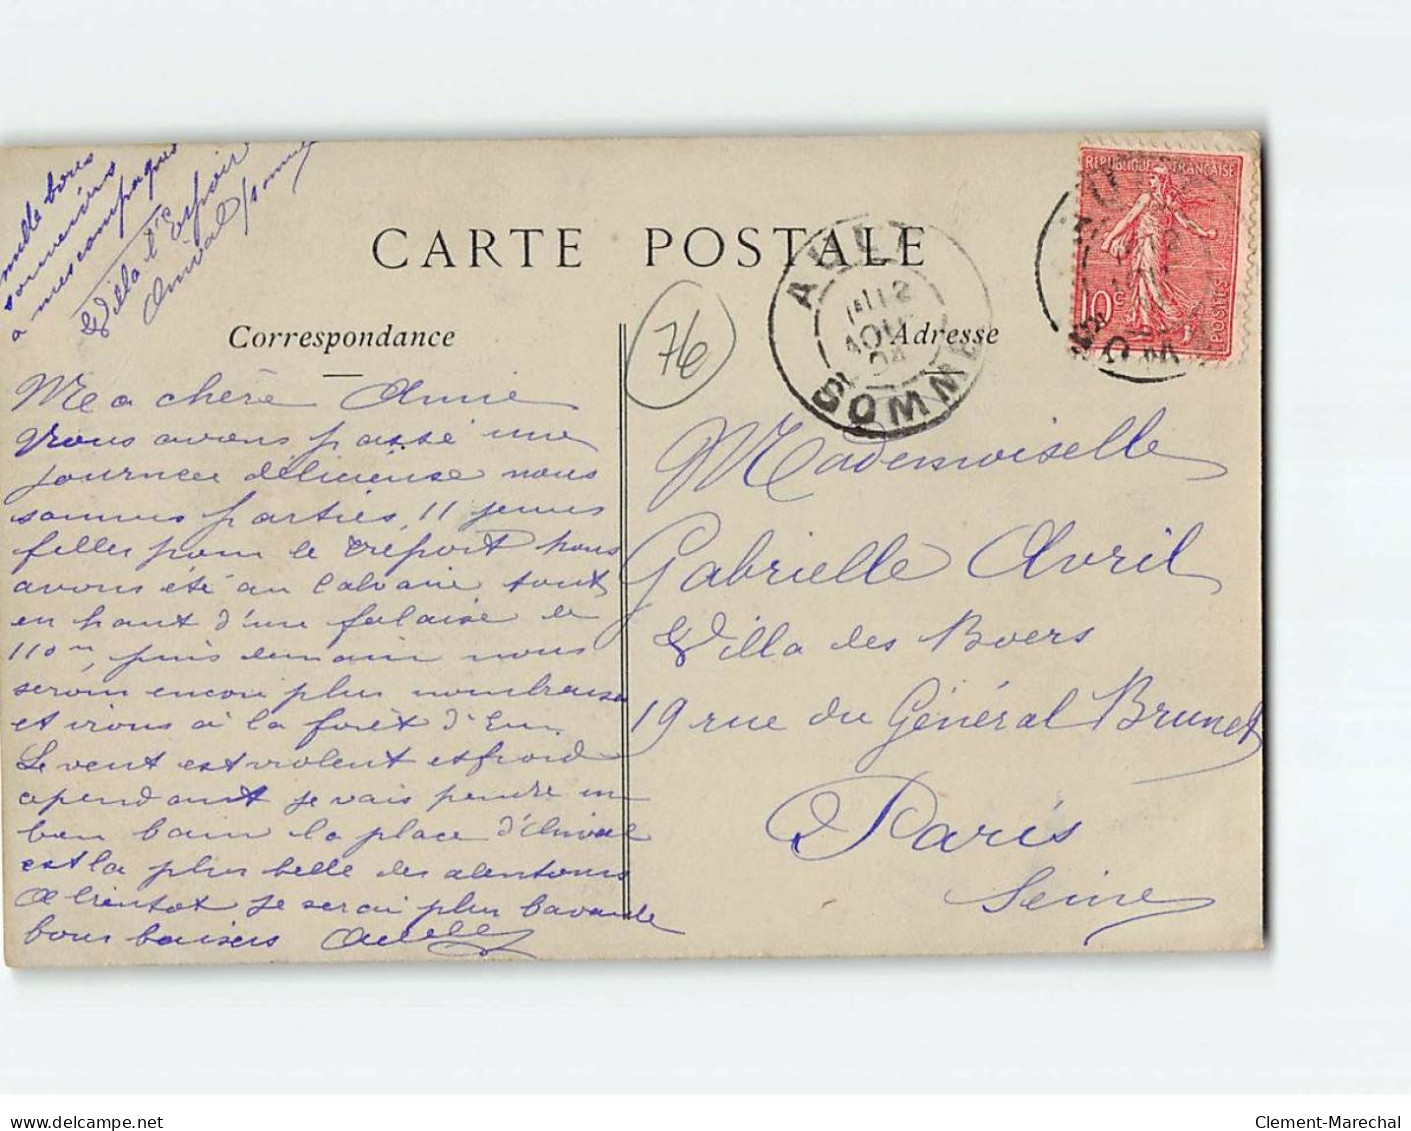 mille bons
souvenirs
a mes compagnes
Villa l'Espoir
Onival s/somme
CARTE POSTALE
Correspondance
Adresse
76
AULT
12
AOU
04
SOMME
RÉPUBLIQUE FRANÇAISE
10c
POSTES
Ma chère Amie
Nous avons passé une
journée délicieuse nous
sommes parties, 11 jeunes
filles pour le Tréport nous
avons été au Calvaire tout
en haut d'une falaise de
110 m, puis demain nous
serons encore plus nombreuses
et irons à la forêt d'Eu.
Le vent est violent et froid
cependant je vais prendre un
bon bain la place d'Onival
est la plus belle des alentours
A bientôt je serai plus bavarde
bons baisers
Mademoiselle
Gabrielle Avril
Villa des Boers
19 rue du Général Brunet
Paris
Seine
Clement-Marechal